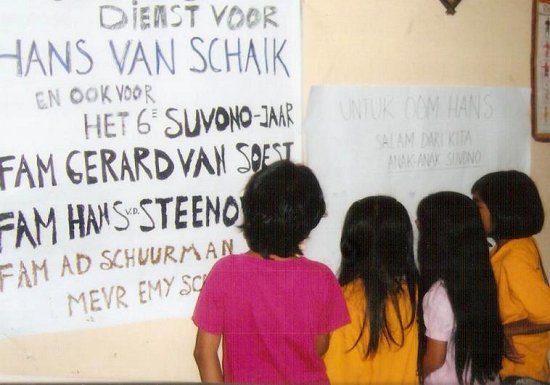 DIENST VOOR
HANS VAN SCHAIK
EN OOK VOOR
HET 6E SUVONO-JAAR
FAM GERARD VAN SOEST
FAM HANS V.D. 
FAM AD SCHUURMAN
MEVR EMY
UNTUK OOM HANS
SALAM DARI KITA
ANAK-ANAK SUVONO